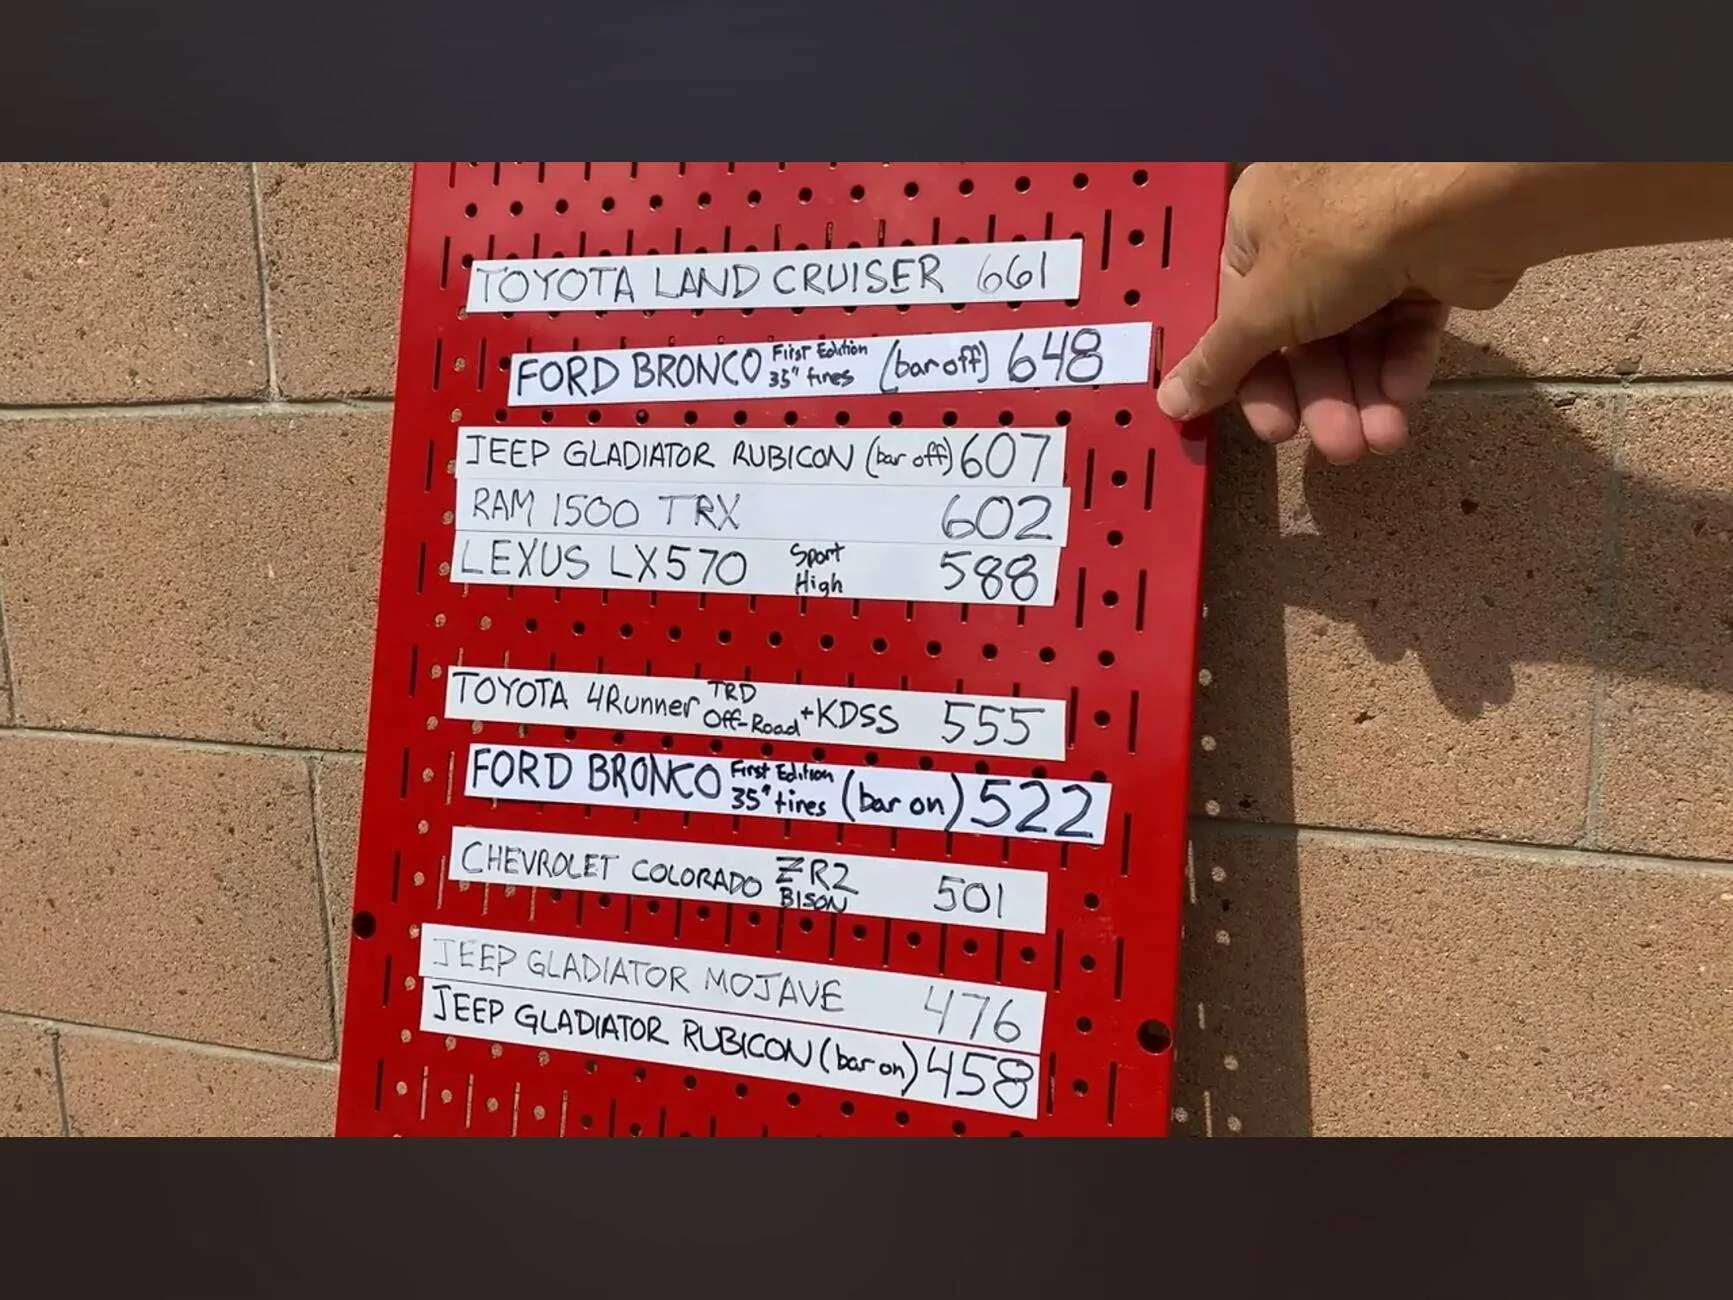 TOYOTA LAND CRUISER 661
FORD BRONCO First Edition 35" tires (bar off) 648
JEEP GLADIATOR RUBICON (bar off) 607
RAM 1500 TRX 602
LEXUS LX570 Sport High 588
TOYOTA 4Runner TRD Off-Road +KDSS 555
FORD BRONCO First Edition 35" tires (bar on) 522
CHEVROLET COLORADO ZR2 BISON 501
JEEP GLADIATOR MOJAVE 476
JEEP GLADIATOR RUBICON (bar on) 458